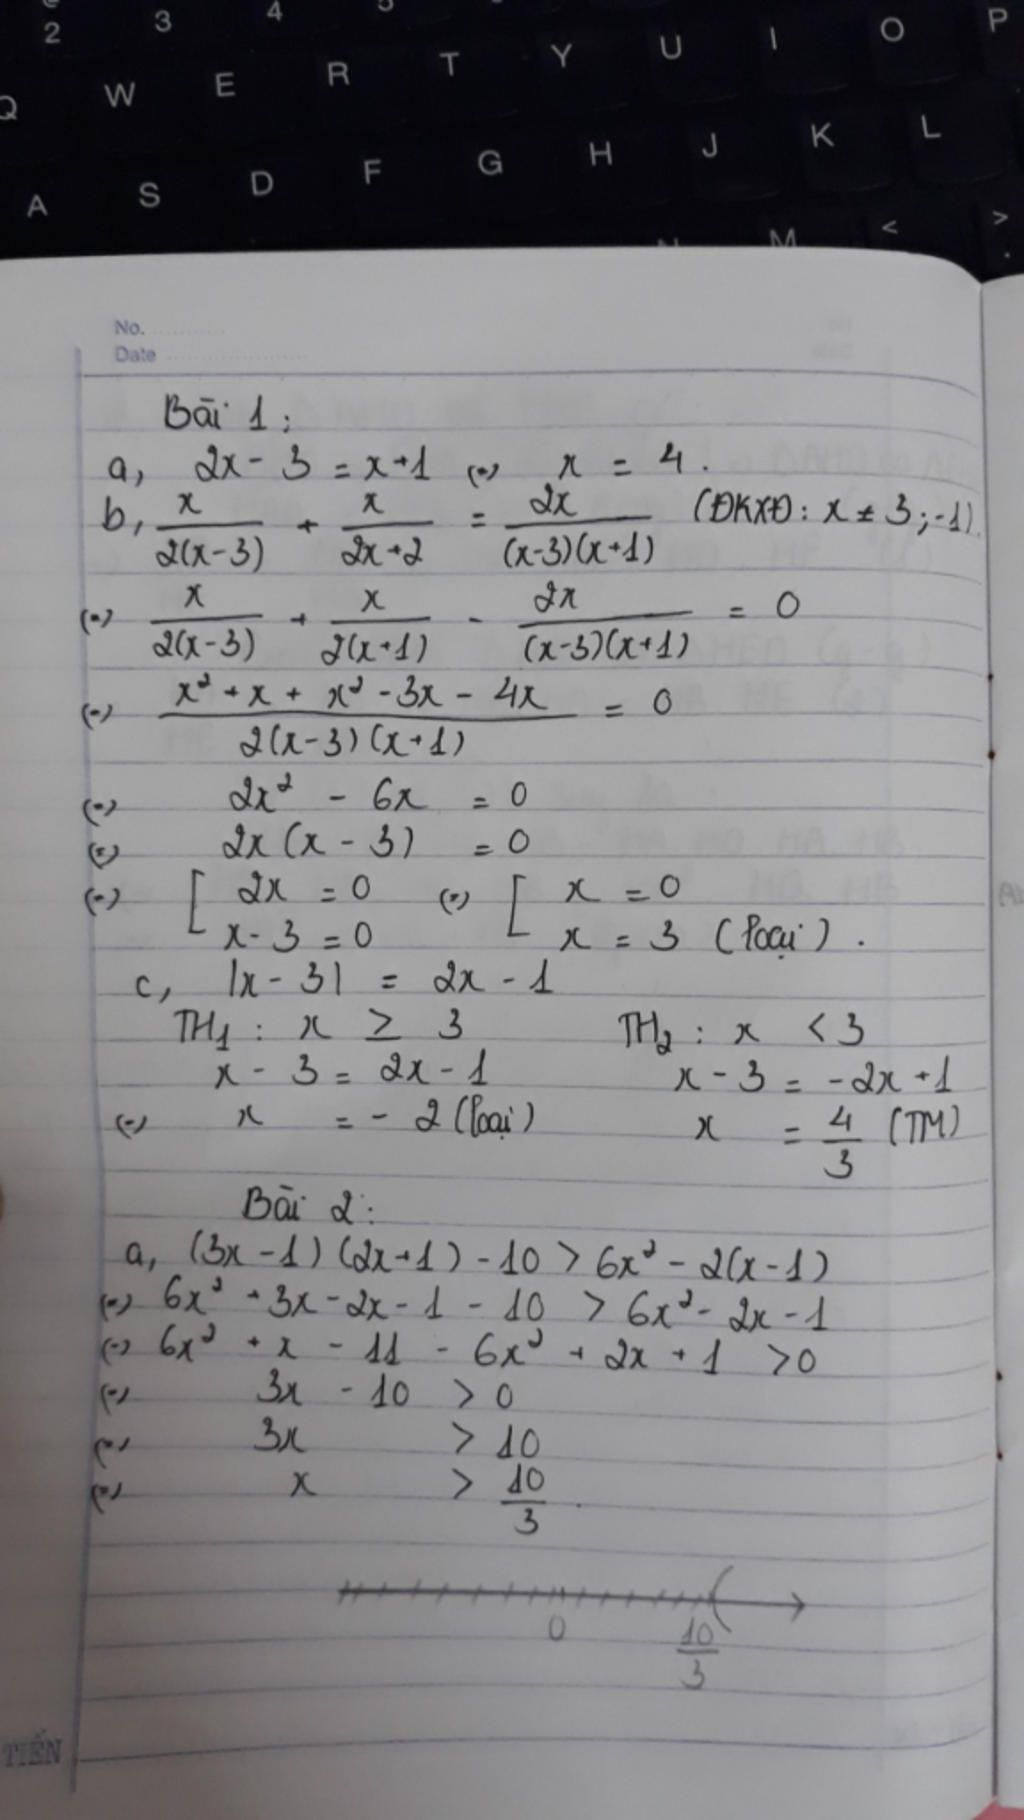 2 3 4 5
Q W E R T Y U I O P
A S D F G H J K L
M < >
No.
Date
Bài 1:
a, 2x - 3 = x + 1 (=) x = 4.
b, x/2(x-3) + x/2x+2 = 2x/(x-3)(x+1) (ĐKXĐ: x ≠ 3; -1).
(=) x/2(x-3) + x/2(x+1) - 2x/(x-3)(x+1) = 0
(=) x² + x + x² - 3x - 4x/2(x-3)(x+1) = 0
(=) 2x² - 6x = 0
(=) 2x(x - 3) = 0
(=) [ 2x = 0 (=) [ x = 0
x - 3 = 0 x = 3 (loại).
c, |x - 3| = 2x - 1
TH1: x ≥ 3 TH2: x < 3
x - 3 = 2x - 1 x - 3 = -2x + 1
(=) x = -2 (loại) x = 4/3 (TM)
Bài 2:
a, (3x - 1)(2x + 1) - 10 > 6x² - 2(x - 1)
(=) 6x² + 3x - 2x - 1 - 10 > 6x² - 2x - 1
(=) 6x² + x - 11 - 6x² + 2x + 1 > 0
(=) 3x - 10 > 0
(=) 3x > 10
(=) x > 10/3.
0 10/3
TIẾN